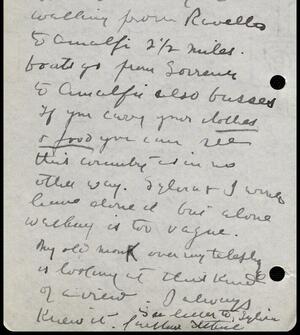 walking from Ravello
to Amalfi 2 1/2 miles.
boats go from Sorrento
to Amalfi also busses
If you carry your clothes
& food you can see
this country as in no
other way. Sylvia & I would
have done it but alone
walking is too vague.
My old monk over my telephone
is looking at this kind
of a view. I always
knew it.